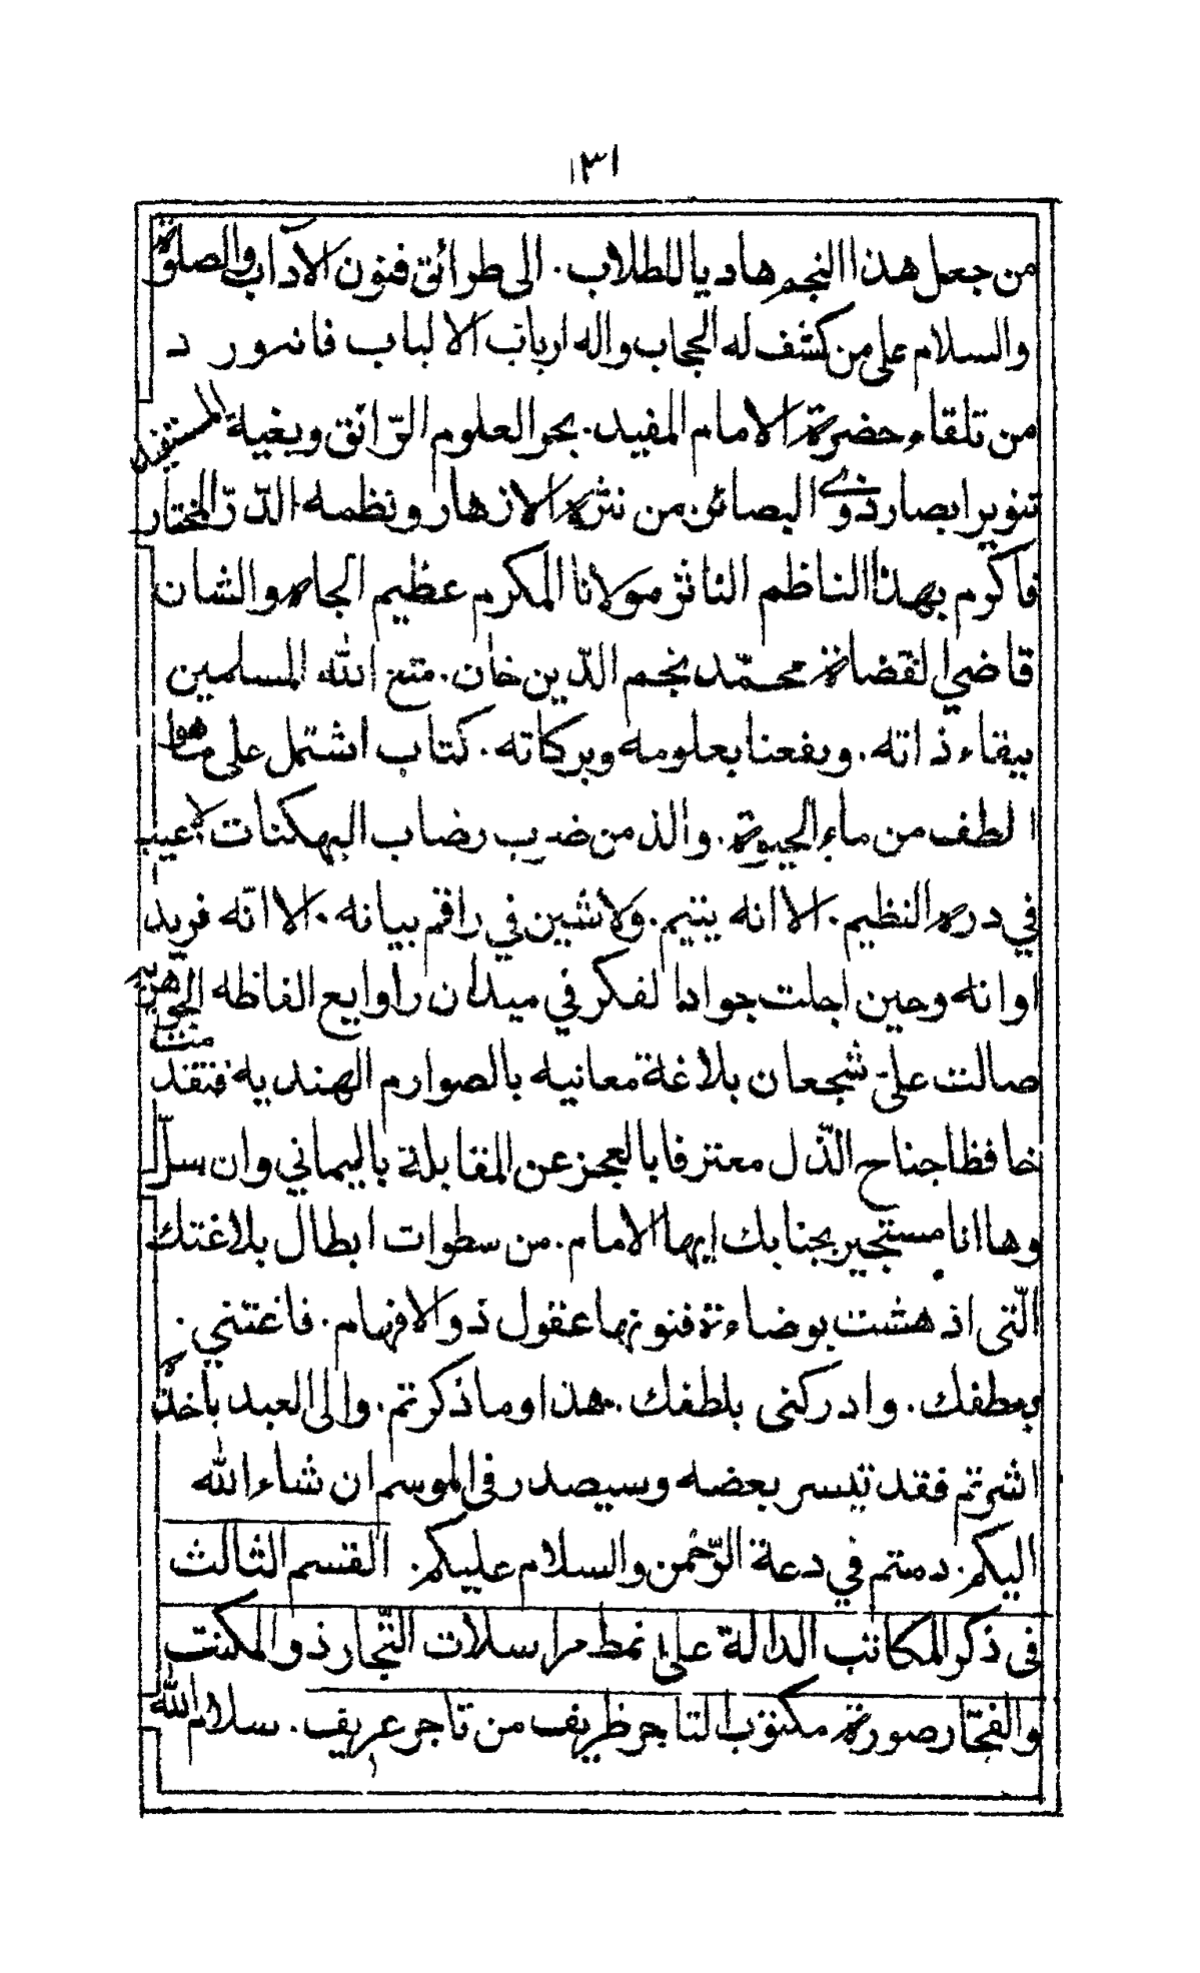 ١٣١
من جعل هذا النجم هاديا للطلاب. الى طرائق فنون الآداب والصلوة
والسلام على من كشف له الحجاب واله ارباب الالباب فانه ورد
من تلقاء حضرة الامام المفيد. بحر العلوم الرّائق وبغية المستفيد
تنوير ابصار ذوي البصائر. من نثره الازهار ونظمه الدّرّ المختار
فاكرم بهذا الناظم الناثر مولانا المكرم عظيم الجاه والشان
قاضي القضاة محمّد نجم الدّين خان. متع الله المسلمين
ببقاء ذاته. ونفعنا بعلومه وبركاته. كتاب اشتمل على ما هو
الطف من ماء الحيوة. والذ من ضرب رضاب البهكنات لا عيب
في دره النظيم. الا انه يتيم. ولا شين في راقم بيانه. الا انّه فريد
اوانه وحين اجلت جواد الفكر في ميدان روايع الفاظه الجوهرية
صالت عليّ شجعان بلاغة معانيه بالصوارم الهندية فتقدمت
خافظا جناح الذّل معترفا بالعجز عن المقابلة باليماني وان سلّ
وها انا مستجير بجنابك ايها الامام. من سطوات ابطال بلاغتك
الّتى اذ هشت بوضاءة فنونها عقول ذو الافهام. فاغثني.
بعطفك. وادركنى بلطفك. هذا وما ذكرتم. والى العبد باخذه
اشرتم فقد تيسر بعضه وسيصدر فى الموسم ان شاء الله
اليكم. دمتم في دعة الرّحمن والسلام عليكم. القسم الثالث
فى ذكر المكاتب الدالة على نمط مراسلات التّجار ذو المكنت
والفخار صورة مكتوب التاجر ظريف من تاجر عريف. سلام الله